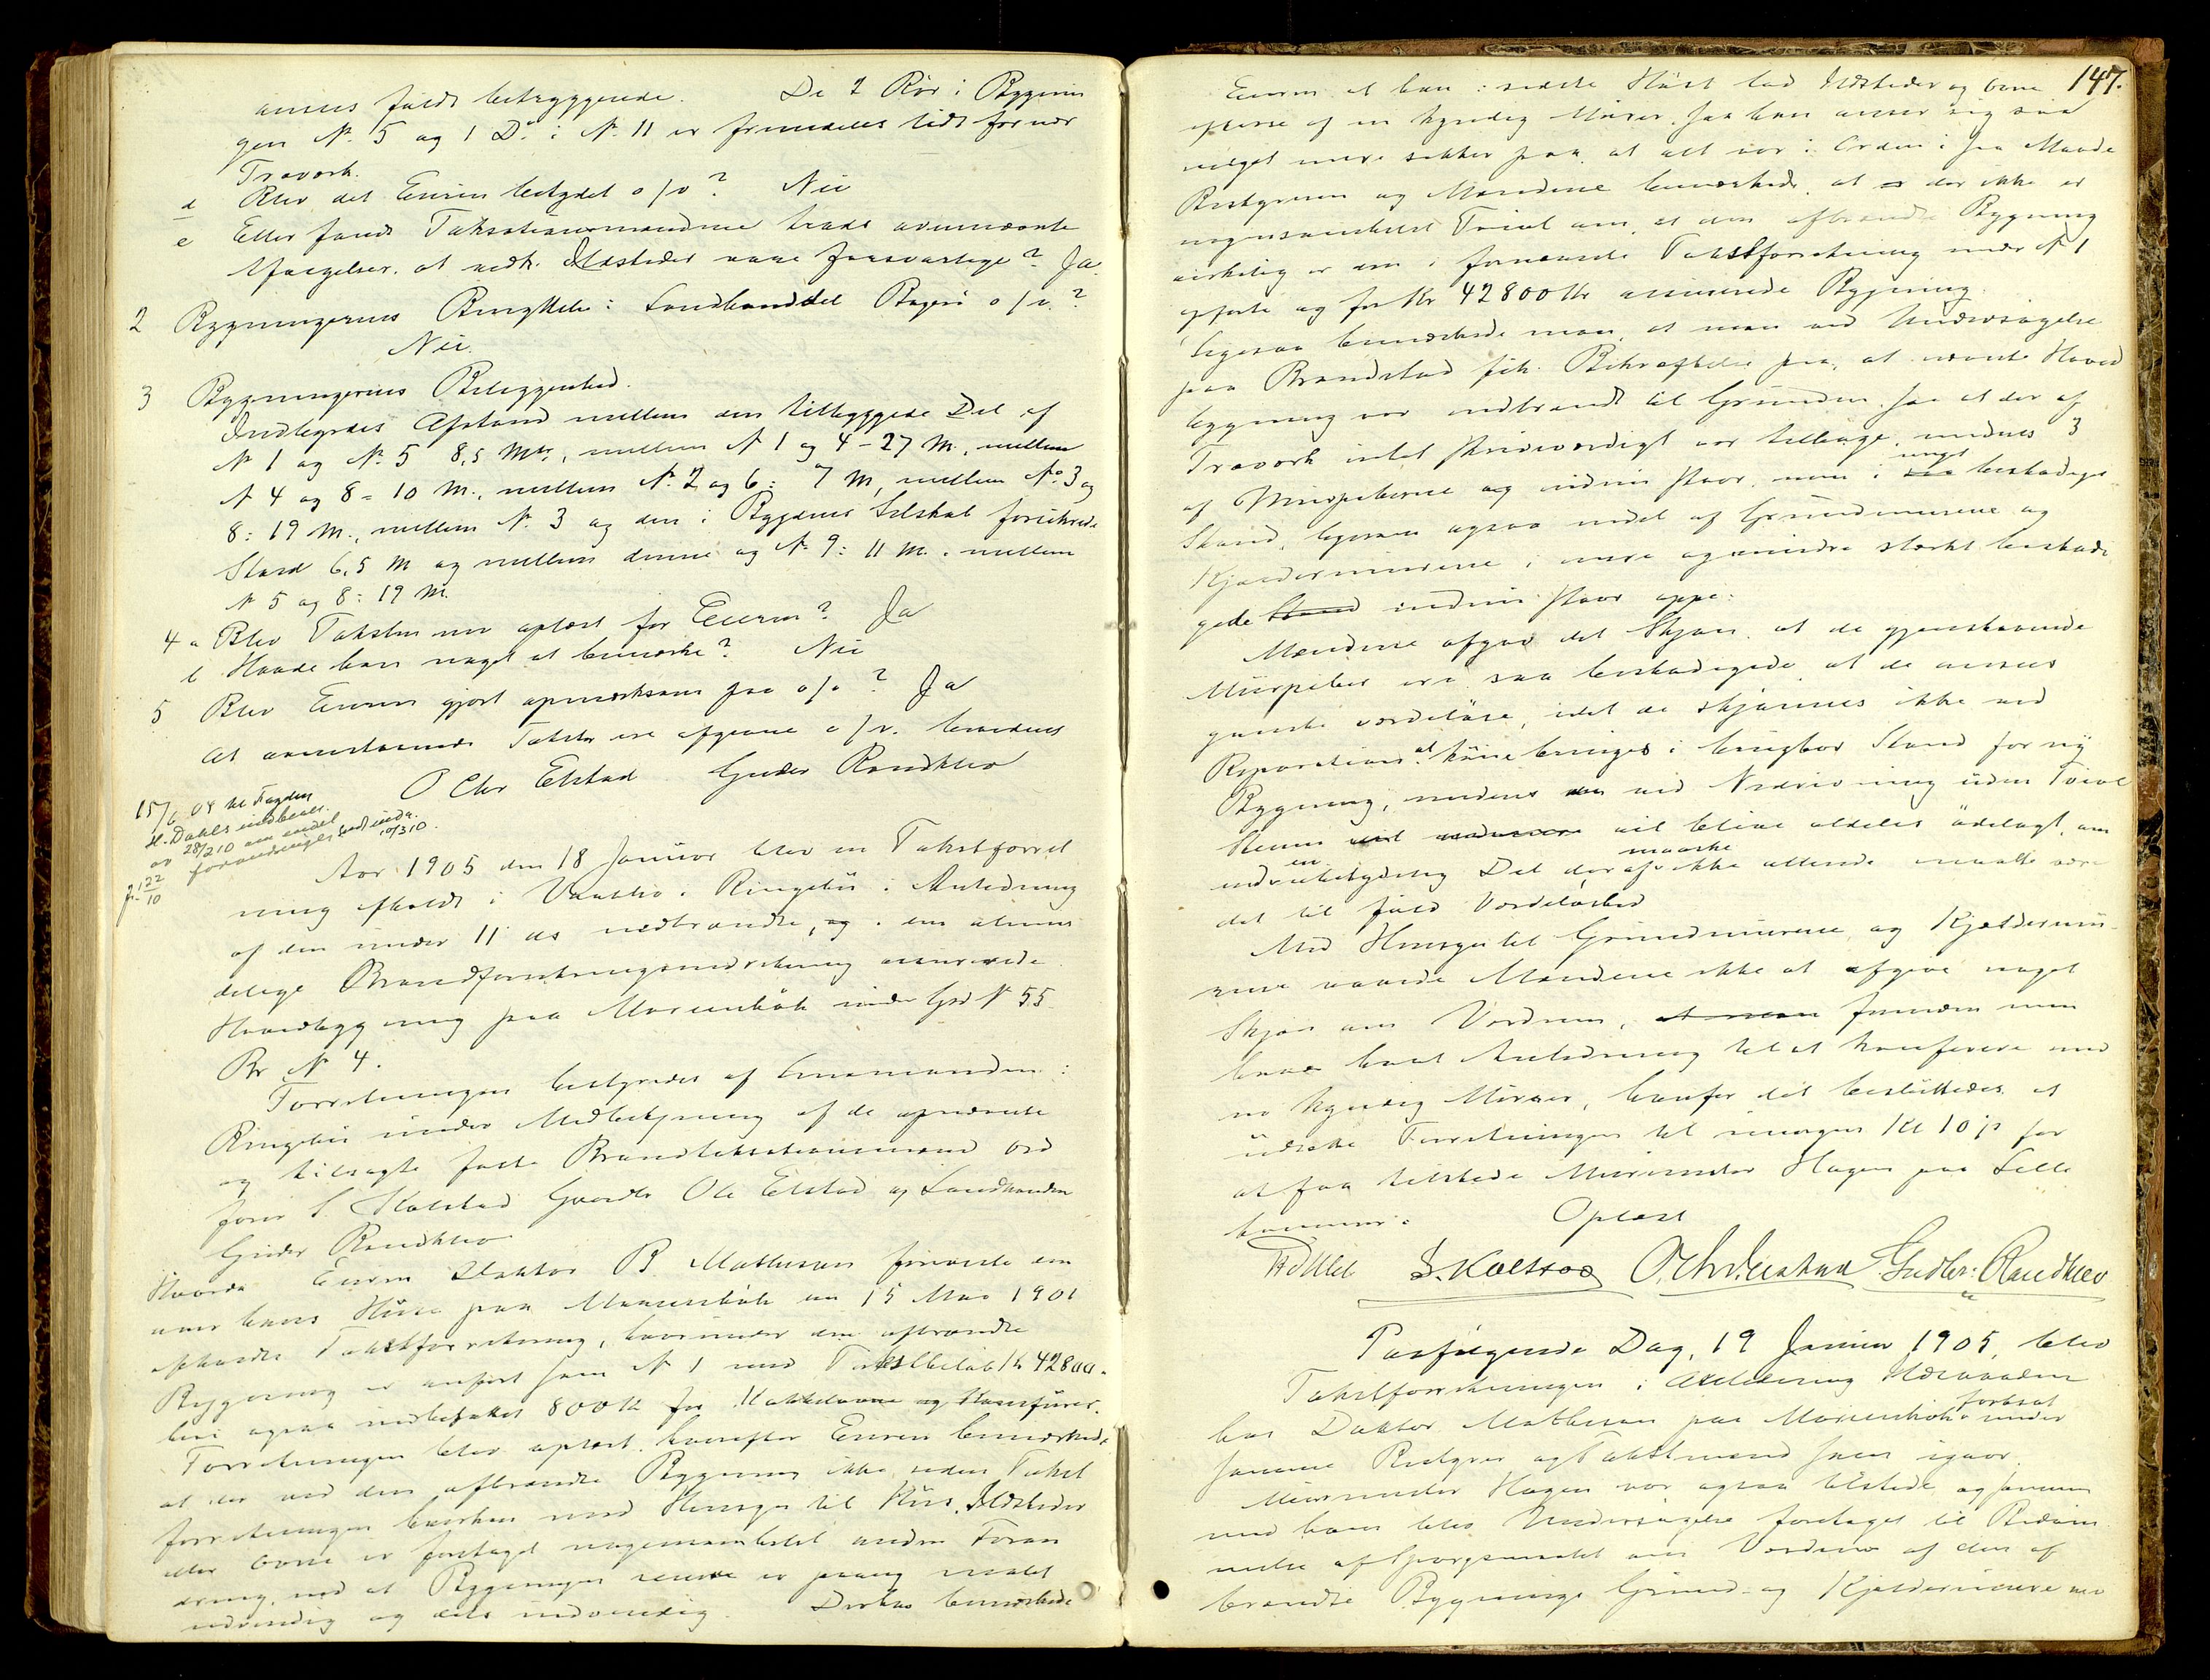 anses fuldt betryggende. De 2 Rör i Bygnin
gen N. 5 og 1 Do. i N. 11 er fremdeles tidt for nær
Træværk.
d Blev det Eieren betydet o/v? Nei
e Eller fandt Taksationsmændene trods ovennævnte
at nedk. Ildsteder vare forsvarlige? Ja.
2 Bygningernes Benyttelse: Landhandel Bageri o/v.?
Nei.
3 Bygningernes Beliggenhed.
Indbyrdes Afstand mellem den tilbyggede Del af
N 1 og N. 5 8,5 Mtr., mellem N 1 og 4 - 27 M., mellem
N 4 og 8 = 10 M., mellem N. 2 og 6: 7 M, mellem No. 3 og
8: 19 M., mellem N. 3 og den i Bygdens Selskab forsikrede
Stald 6,5 M og mellem denne og N. 9: 11 M. mellem
N 5 og 8: 19 M.
4 a Blev Taksten nu oplæst for Eieren? Ja
b Havde han noget at bemærke? Nei
5 Blev Eieren gjort opmærksom paa o/v? Ja
At ovenstaaende Takster ere afgivne o/v. bevidnes
O Chr Elstad Gudbr Randklev
15/6 04 til Fogden
H. Dahls indber.
av 28/2 10 om endel
forandringer indsendt. 10/3 10.
jr. 122/10
Aar 1905 den 18 Januar blev en Takstforret
ning afholdt i Vaalebro i Ringebu i Anledning
af den under 11 ds nedbrændte, og i den almin
delige Brandforsikringsindretning assurerede
Hovedbygning paa Marienhök under Grd N 55
Br N 4.
Forretningen bestyredes af Lensmanden i
Ringebu under Medbetjening af de opnævnte
og tilsagte faste Brandtaksationsmænd Ord
fører S. Kolstad Gaardbr Ole Elstad og Landhandler
Gudbr Randklev
Eieren Doktor B. Mathesen foreviste en
over hans Huse paa Marienhök den 15 Mai 1901
afholdte Takstforretning, hvorunder den afbrændte
Bygning er anført som N 1 med Takstbeløb Kr 42800.
heri ogsaa indbefattet 800 Kr for Kakkelovne og Komfurer.
Forretningen blev oplæst, hvorefter Eieren bemærkede
at der ved den afbrændte Bygning ikke siden Takst
forretningen hverken med Hensyn til Hus, Ildsteder
eller Ovne er foretaget nogensomhelst anden Foran
dring, end at Bygningen senere er paany malet
udvendig og dels indvendig. Derhos bemærkede
147.
Eieren at han i sidste Høst lod Ildsteder og Ovne
efterse af en kyndig Murer, saa han anser sig saa
meget mere sikker paa at alt var i Orden i saa Maade
Bestyreren og Mændene bemærkede, at der ikke er
nogensomhelst Tvivl om, at den afbrændte Bygning
virkelig er den i fornævnte Takstforretning under N 1
opførte og for Kr 42800 Kr assurerede Bygning.
Ligesaa bemærkede man, at man ved Undersøgelse
paa Brandstad fik Bekræftelse paa, at nævnte Hoved
bygning var nedbrændt til Grunden, saa at der af
Træværk intet var tilbage, medens 3
af Murpiberne endnu staar, men i meget beskadiget
Stand, ligesom ogsaa endel af Grundmurene og
Kjældermurene i mere og mindre stærkt beskadi
gede Stand endnu staar oppe.
Mændene afgav det Skjøn, at de gjenstaaende
Murpiber ere saa beskadigede, at de ansees
ganske værdeløse, idet de skjønnes ikke ved
Reparation at kunne bringes i brugbar Stand for ny
Bygning, medens ved Nedrivning uden Tvivl
Stenen vil blive aldeles ødelagt, om
end en ubetydelig Del deraf maaske ikke aldeles maatte være
det til fuld Værdeløshed
Med Hensyn til Grundmurene og Kjældermu
rene vaavede Mændene ikke at afgive noget
Skjøn om Værdien, forinden man
havde havt Anledning til at konferere med
en kyndig Murer, hvorfor det besluttedes at
udsætte Forretningen til imorgen Kl 10 fr for
at faa tilstede Murmester Hagen paa Lille
hammer. Oplæst
S. Kolstad O. Chr. Elstad Gudbr. Randklev
Paafølgende Dag, 19 Januar 1905, blev
Takstforretningen i Anledning Ildsvaaden
hos Doktor Mathesen paa Marienhök fortsat under
samme Bestyrer og Takstmænd som igaar.
Murmester Hagen var ogsaa tilstede og sammen
med ham blev Undersøgelse foretaget til Bedøm
melse af Spørgsmaalet om Værdien af den af
brændte Bygnings Grund- og Kjældermure